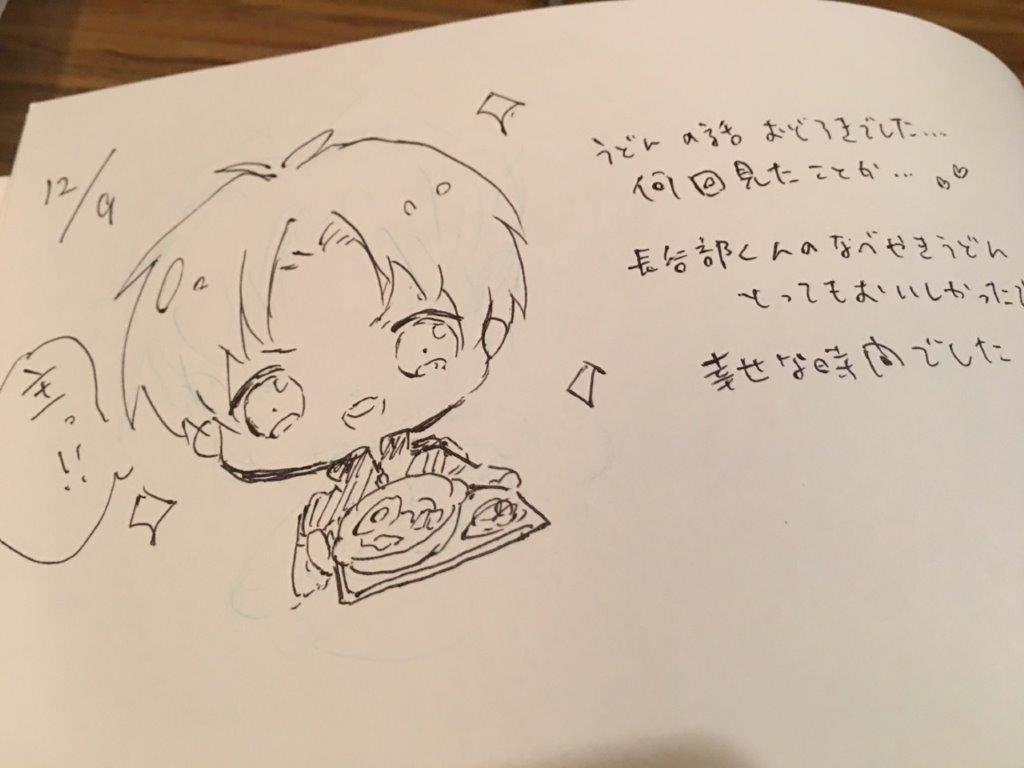 12/9
うどんの話 おどろきでした…
何回見たことか…
長谷部くんのなべやきうどん
とってもおいしかったで
幸せな時間でした
!!